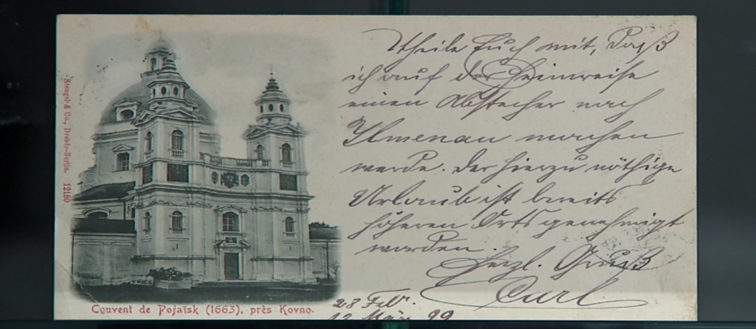 Stengel & Co., Dresde-Berlin. 12150
Couvent de Pojaïsk (1663), près Kovno.
theile Euch mit, daß
ich auf der Heimreise
einen Abstecher nach
Ilmenau machen
werde. Der hierzu nöthige
Urlaub ist bereits
höheren Orts genehmigt
worden.
Herzl. Gruß
Curl
28 Feb.
12 März 99